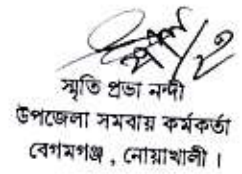 স্মৃতি প্রভা নন্দী
উপজেলা সমবায় কর্মকর্তা
বেগমগঞ্জ , নোয়াখালী ।